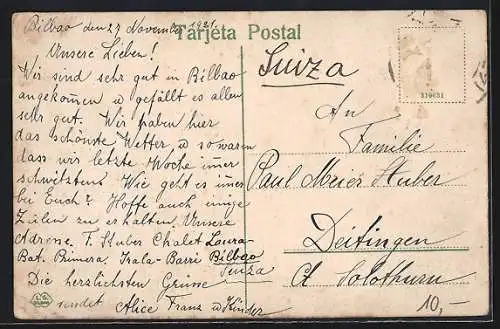 Bilbao den 27 November 1921.
Tarjeta Postal
Unsere Lieben!
Wir sind sehr gut in Bilbao
angekommen u gefällt es allen
sehr gut. Wir haben hier
das schönste Wetter, u so waren
dass wir letzte Woche immer
schwitzten. Wie geht es immer
bei Euch? Hoffe auch einige
Zeilen zu erhalten. Unsere
Adresse. T. Stuber Chalet Laura-
Bat. Primera. Irala-Barri Bilbao
Die herzlichsten Grüsse
sendet Alice Franz u Kinder
Suiza
310631
An
Familie
Paul Meier Stuber
Deitingen
Ct Solothurn
10,-